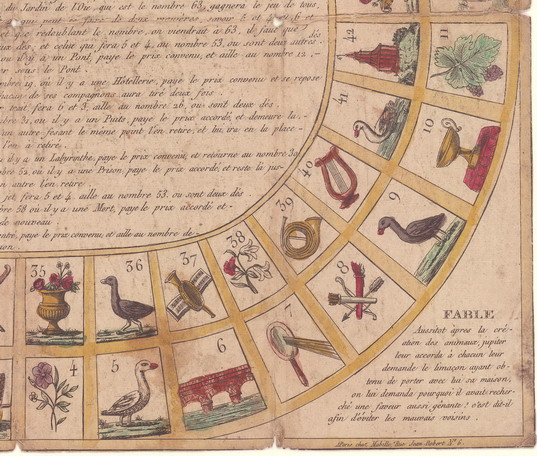 du Jardin de l'Oie, qui est le nombre 63, gagnera le jeu de tous,
de deux
redoublant le nombre, on viendrait à 63, il faut que dès
et celui qui fera 5 et 4, au nombre 53, ou sont deux autres
ou il y a un Pont, paye le prix convenu, et aille au nombre 12,
sous le Pont.
19, où il y a une Hôtellerie, paye le prix convenu et se repose
de ses compagnons, aura tiré deux fois
fera 6 et 3, aille au nombre 26, ou sont deux dés.
31, où il y a un Puits, paye le prix accordé, et demeure là,
un autre fesant le même point l'en retire, et lui ira en la place
l'on a retiré.
il y a un Labyrinthe, paye le prix convenu, et retourne au nombre 30
52, où il y a une Prison, paye le prix accordé, et reste là jus-
un autre l'en retire
jet fera 5 et 4, aille au nombre 53, ou sont deux dés
58 où il y a une Mort, paye le prix accordé et
de nouveau
paye le prix convenu, et aille au nombre de
35
36
37
38
39
40
41
42
4
5
6
7
8
9
10
11
FABLE
Aussitot àpres la cré-
ation des animaux, jupiter
leur accorda à chacun leur
demande le limaçon ayant ob-
tenu de porter avec lui sa maison,
on lui demanda pourquoi il avait recher-
ché une faveur aussi gênante ! c'est dit-il
afin d'éviter les mauvais voisins .
AParis chez Mabille, Rue Jean-Robert N° 6.